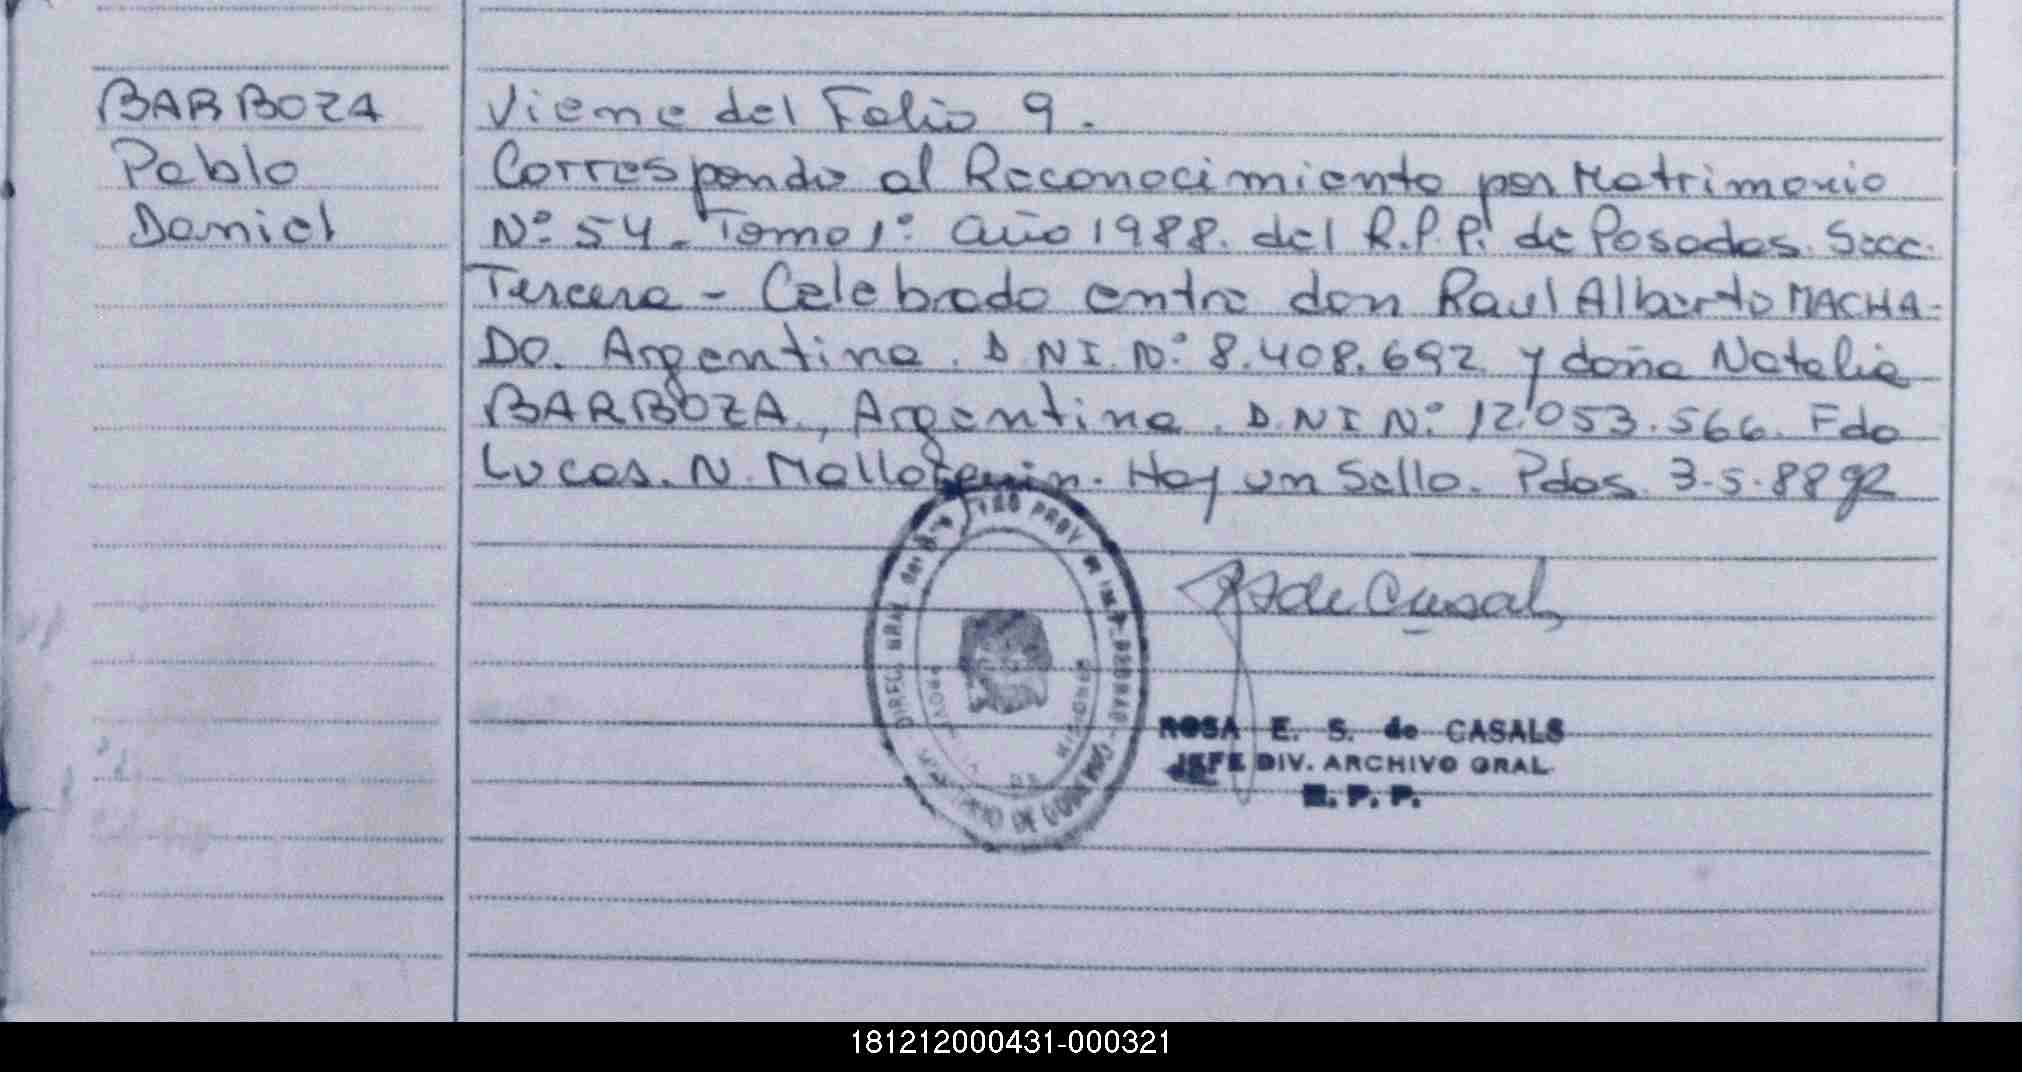 BARBOZA
Pablo
Daniel
Viene del Folio 9.
Corresponde al Reconocimiento por Matrimonio
Nº 54. Tomo 1º año 1988. del R.P.P. de Posadas. Secc.
Tercera - Celebrado entre don Raul Alberto MACHA-
DO. Argentino. D.NI. Nº 8.408.692 y doña Natalia
BARBOZA, Argentina. D.NI Nº 12.053.566. Fdo
Lucas. N. Hay un Sello. Pdas. 3-5-88
DIREC. GRAL. del PROV. de
MINISTERIO DE GOBIERNO
MISIONES
de Casals
ROSA E. S. de CASALS
JEFE DIV. ARCHIVO GRAL.
R. P. P.
181212000431-000321